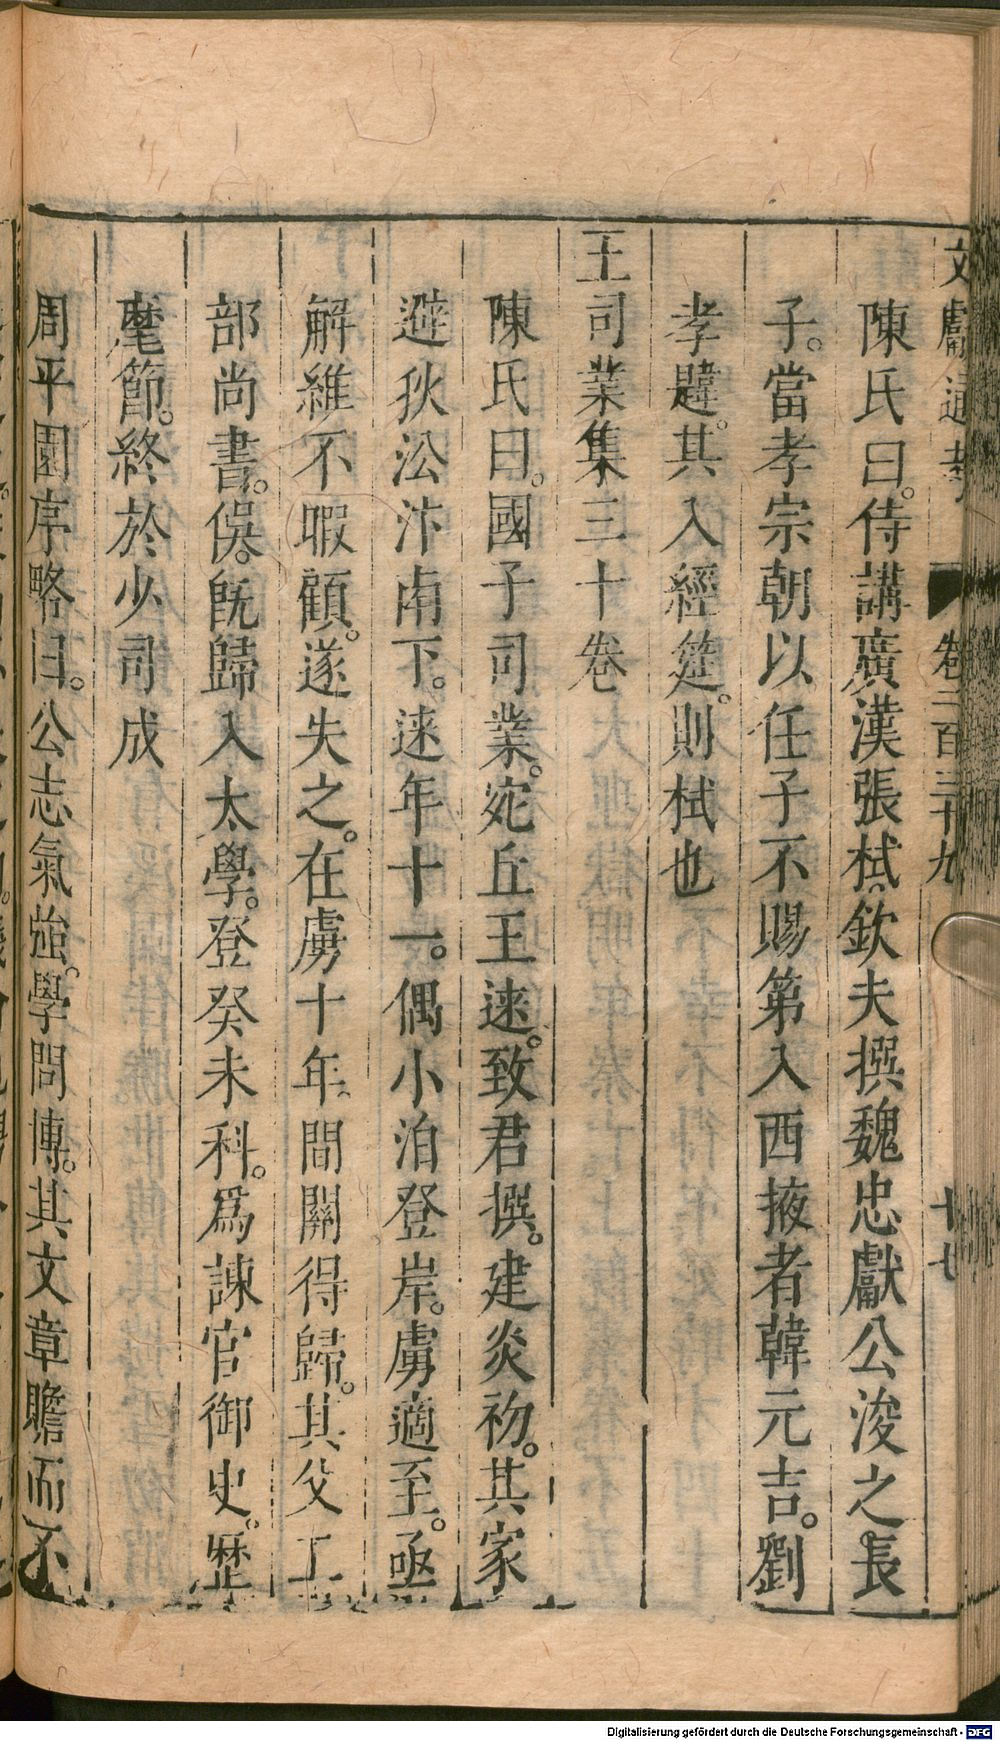 文獻通考 卷二百三十九 十七
陳氏曰。侍講廣漢張栻。欽夫撰魏忠獻公浚之。長
子。當孝宗朝以任子不賜第入西掖者韓元吉。劉
孝韙。其入經筵。則栻也
王司業集三十卷
陳氏曰。國子司業。宛丘王逨。致君撰。建炎初。其家
避狄㳂汴南下。逨。年十一。偶小泊登岸。虜適至。亟
解維不暇顧。遂失之。在虜十年。間關得歸。其父工
部尚書。俁。旣歸入太學。登癸未科。爲諫官御史。歷
麾節。終於少司成
周平園序略曰。公志氣强。學問博。其文章贍而不
Digitalisierung gefördert durch die Deutsche Forschungsgemeinschaft - DFG